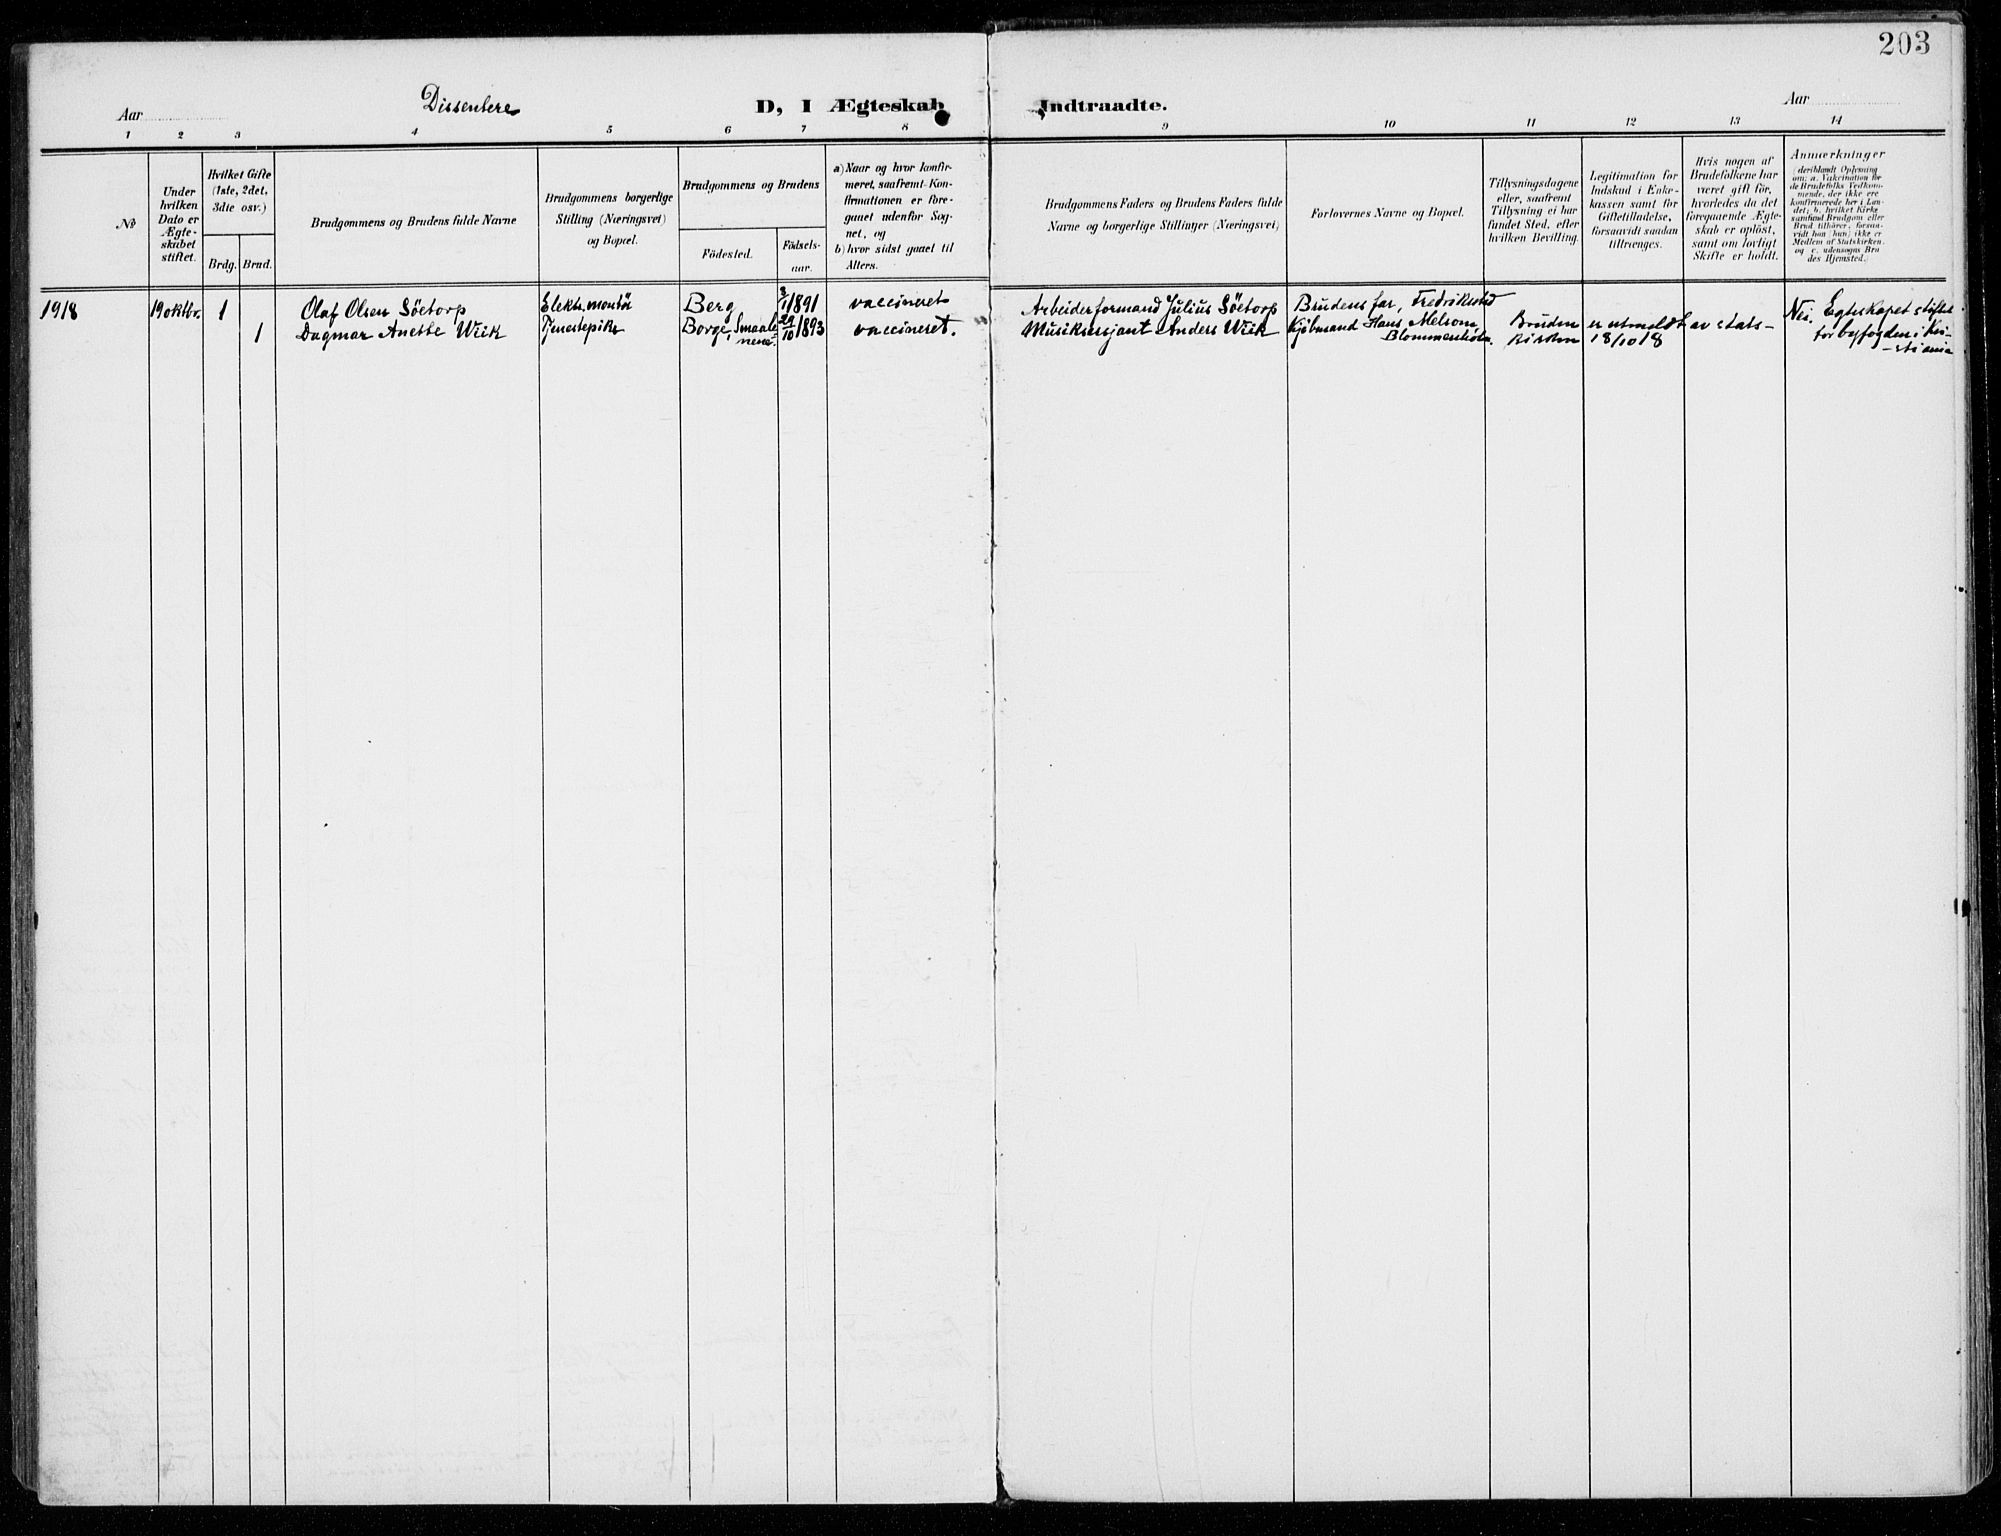 203
Dissentere D, I Ægteskab Indtraadte.
Aar
Aar
1 2 3 4 5 6 7 8 9 10 11 12 13 14
No
Under
hvilken
Dato er
Ægte-
skabet
stiftet.
Hvilket Gifte
(1ste, 2det,
3dte osv.)
Brdg. Brud.
Brudgommens og Brudens fulde Navne
Brudgommens borgerlige
Stilling (Næringsvei)
og Bopæl.
Brudgommens og Brudens
Födested.
Födsels-
aar.
a) Naar og hvor konfir-
meret, saafremt Kon-
firmationen er fore-
gaaet udenfor Sog-
net, og
b) hvor sidst gaaet til
Alters.
Brudgommens Faders og Brudens Faders fulde
Navne og borgerlige Stillinger (Næringsvei)
Forlovernes Navne og Bopæl.
Tillysningsdagene
eller, saafremt
Tillysning ei har
fundet Sted, efter
hvilken Bevilling.
Legitimation for
Indskud i Enke-
kassen samt for
Giftetilladelse,
forsaavidt saadan
tiltrænges.
Hvis nogen af
Brudefolkene har
været gift för,
hvorledes da det
foregaaende Ægte-
skab er oplöst,
samt om lovligt
Skifte er holdt.
Anmærkninger
(deriblandt Oplysning
om: a. Vakcination for
de Brudefolks Vedkom-
mende, der ikke ere
konfirmerede her i Lan-
det; b. hvilket Kirke
samfund Brudgom eller
Brud tilhörer, forsaa-
vidt han (hun) ikke er
Medlem af Statskirken.
og c. udensogns Bru
des Hjemsted.)
1918 19 oktbr. 1 Olaf Olsen Söetorp Elektr. montör Berg 3/1 1891 vaccineret Arbeiderformand Julius Söetorp Brudens far, Fredrikstad Nei. Egteskapet stiftet
1 Dagmar Anette Wiik Tjenestepike Borge, Smaale- 29/10 1893 vaccineret. Musiksersjant Anders Wiik Kjöbmand Hans Melsom, Bruden er utmeldt av stats- for byfogden i Kri-
nene. Blommenholm. kirken 18/10 18 -stiania